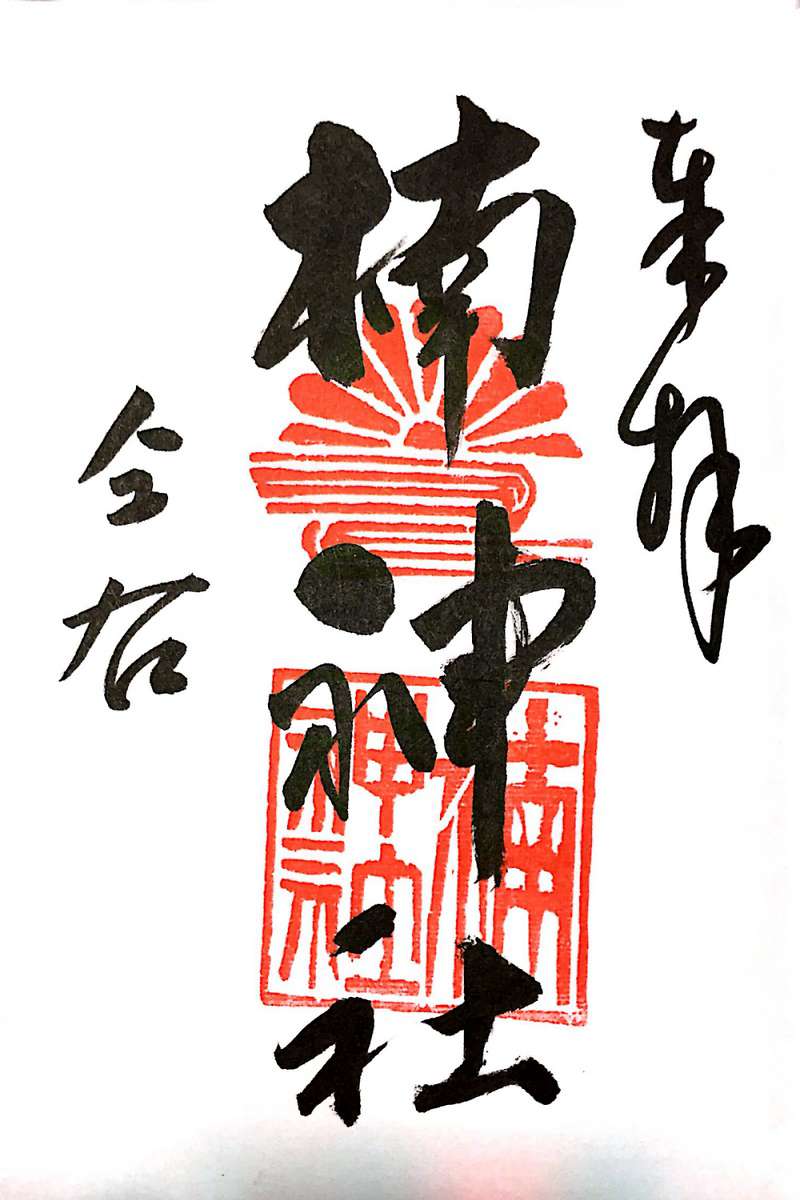 奉拝
楠神社
仝右
楠
神社